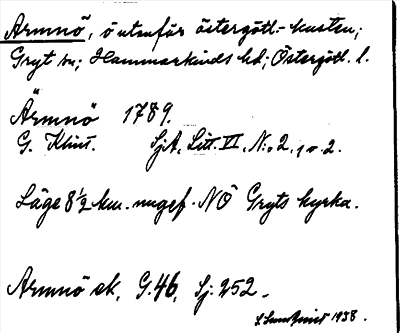 Armnö, ö utanför östergötl.-kusten;
Gryt sn; Hammarkinds hd; Östergötl. l.
Ärmnö 1789.
G. Klint. SjA, Litt. VI, N:o 2, 1 o. 2.
Läge 8½ km. ungef. NÖ Gryts kyrka.
Armnö ek, G. 46, Sj. 252.
1938.